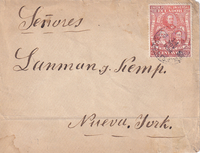 Señores
Lanman y Kemp.
Nueva York.